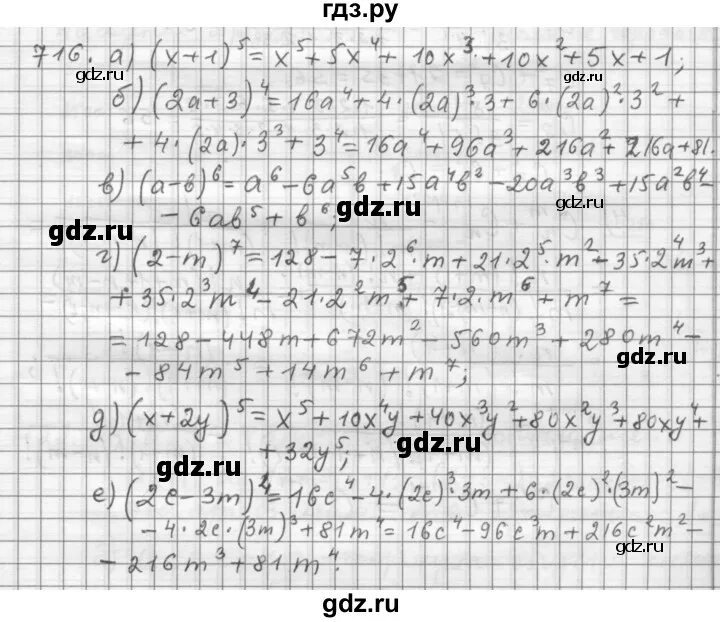 гдз.ру
716. а) (x+1)⁵ = x⁵+5x⁴+ 10x³+10x²+5x+1;
gdz.ru gdz.ru
б) (2a+3)⁴=16a⁴+4·(2a)³·3+6·(2a)²·3²+
+4·(2a)·3³+3⁴=16a⁴+96a³+216a²+216a+81.
в) (a-в)⁶=a⁶-6a⁵в+15a⁴в²-20a³в³+15a²в⁴-
-6aв⁵+в⁶;
gdz.ru gdz.ru gdz.ru
г) (2-m)⁷=128-7·2⁶·m+21·2⁵·m²-35·2⁴m³+
+35·2³m⁴-21·2²m⁵+7·2·m⁶+m⁷=
=128-448m+672m²-560m³+280m⁴-
gdz.ru
-84m⁵+14m⁶+m⁷;
д) (x+2y)⁵=x⁵+10x⁴y+40x³y²+80x²y³+80xy⁴+
gdz.ru
+32y⁵;
gdz.ru
е) (2c-3m)⁴=16c⁴-4·(2c)³·3m+6·(2c)²·(3m)²-
-4·2c·(3m)³+81m⁴=16c⁴-96c³m+216c²m²-
gdz.ru
-216m³+81m⁴.
gdz.ru